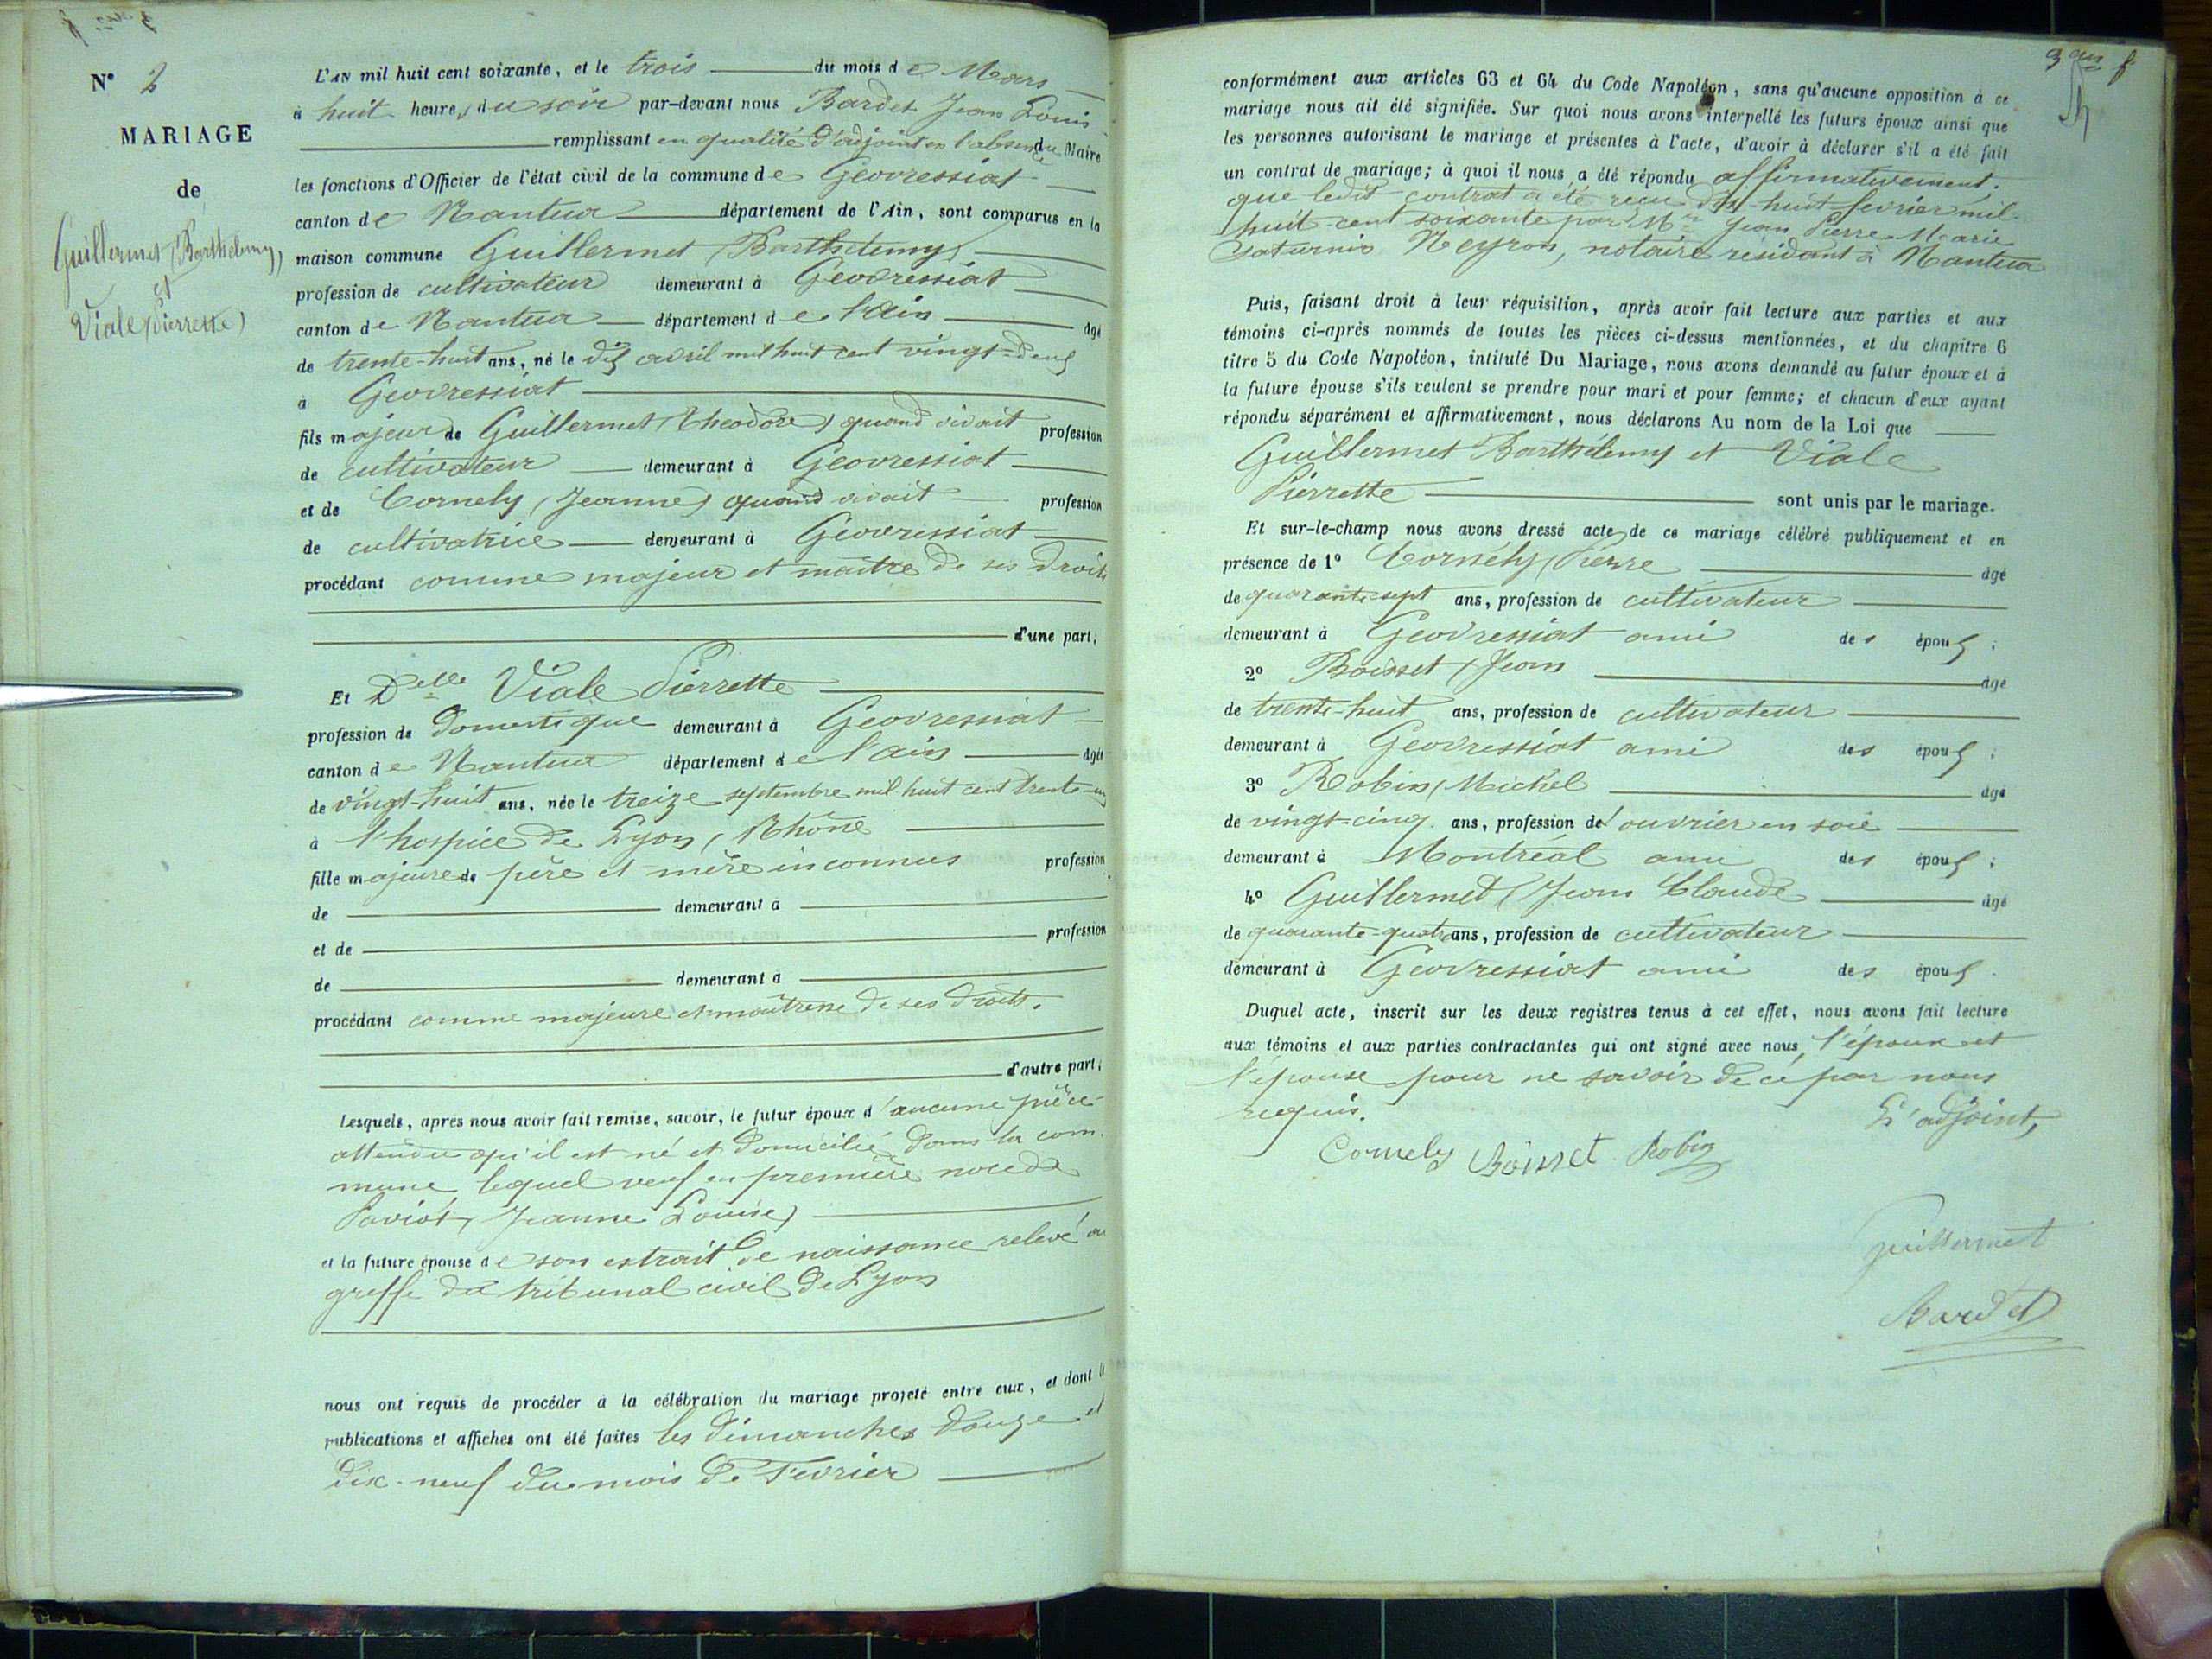 N° 2
MARIAGE
de
Guillermet (Barthélemy)
et
Viale (Pierrette)
L'AN mil huit cent soixante, et le trois du mois de Mars
à huit heures du soir par-devant nous Bardet Jean Louis
remplissant en qualité d'adjoint en l'absence du Maire
les fonctions d'Officier de l'état civil de la commune de Géovressiat
canton de Nantua département de l'Ain, sont comparus en la
maison commune Guillermet (Barthélemy)
profession de cultivateur demeurant à Géovressiat
canton de Nantua département de l'ain âgé
de trente-huit ans, né le dix avril mil huit cent vingt-deux
à Géovressiat
fils majeur de Guillermet (théodore) quand vivait profession
de cultivateur demeurant à Géovressiat
et de Cornely (Jeanne) quand vivait profession
de cultivatrice demeurant à Géovressiat
procédant comme majeur et maître de ses droits
d'une part;
Et Delle Viale Pierrette
profession de domestique demeurant à Géovressiat
canton de Nantua département de l'ain âgée
de vingt-huit ans, née le treize septembre mil huit cent trente-un
à l'hospice de Lyon (Rhône
fille majeure de père et mère inconnus profession
de demeurant à
et de profession
de demeurant à
procédant comme majeure et maîtresse de ses droits.
d'autre part;
Lesquels, après nous avoir fait remise, savoir, le futur époux d'aucune pièce
attendu qu'il est né et domicilié dans la com-
mune lequel veuf en première noce de
Jeanne Louise)
et la future épouse de son extrait de naissance relevé au
greffe du tribunal civil de Lyon
nous ont requis de procéder à la célébration du mariage projeté entre eux, et dont les
publications et affiches ont été faites les dimanches douze et
dix-neuf du mois de Février
conformément aux articles 63 et 64 du Code Napoléon, sans qu'aucune opposition à ce
mariage nous ait été signifiée. Sur quoi nous avons interpellé les futurs époux ainsi que
les personnes autorisant le mariage et présentes à l'acte, d'avoir à déclarer s'il a été fait
un contrat de mariage; à quoi il nous a été répondu affirmativement.
que ledit contrat a été reçu dix-huit février mil-
huit-cent soixante par Me Jean Pierre Marie
Saturnin Neyron, notaire résidant à Nantua
Puis, faisant droit à leur réquisition, après avoir fait lecture aux parties et aux
témoins ci-après nommés de toutes les pièces ci-dessus mentionnées, et du chapitre 6
titre 5 du Code Napoléon, intitulé Du Mariage, nous avons demandé au futur époux et à
la future épouse s'ils veulent se prendre pour mari et pour femme; et chacun d'eux ayant
répondu séparément et affirmativement, nous déclarons Au nom de la Loi que
Guillermet Barthélemy et Viale
Pierrette sont unis par le mariage.
Et sur-le-champ nous avons dressé acte de ce mariage célébré publiquement et en
présence de 1° Cornély (Pierre âgé
de quarante-sept ans, profession de cultivateur
demeurant à Géovressiat ami des époux;
2° Boisset (Jean âgé
de trente-huit ans, profession de cultivateur
demeurant à Géovressiat ami des époux;
3° Robin (Michel âgé
de vingt-cinq ans, profession d'ouvrier en soie
demeurant à Montréal ami des époux;
4° Guillermet (Jean Claude âgé
de quarante-quatre ans, profession de cultivateur
demeurant à Géovressiat ami des époux.
Duquel acte, inscrit sur les deux registres tenus à cet effet, nous avons fait lecture
aux témoins et aux parties contractantes qui ont signé avec nous, l'époux et
l'épouse pour ne savoir de ce par nous
requis. L'adjoint,
Cornely Boisset Robin
Guillermet
Bardet